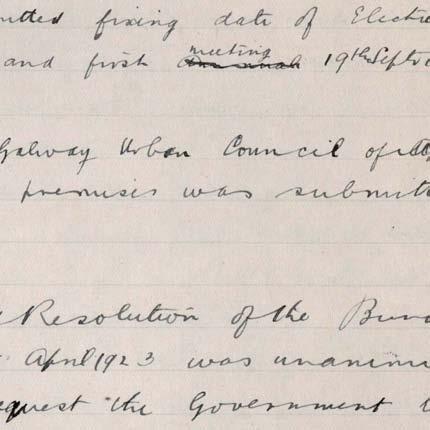 fixing date of Electio
meeting
and first 19th Septe
Galway Urban Council of
premises was submitt
Resolution of the Bun
April 1923 was unanim
equest the Government t